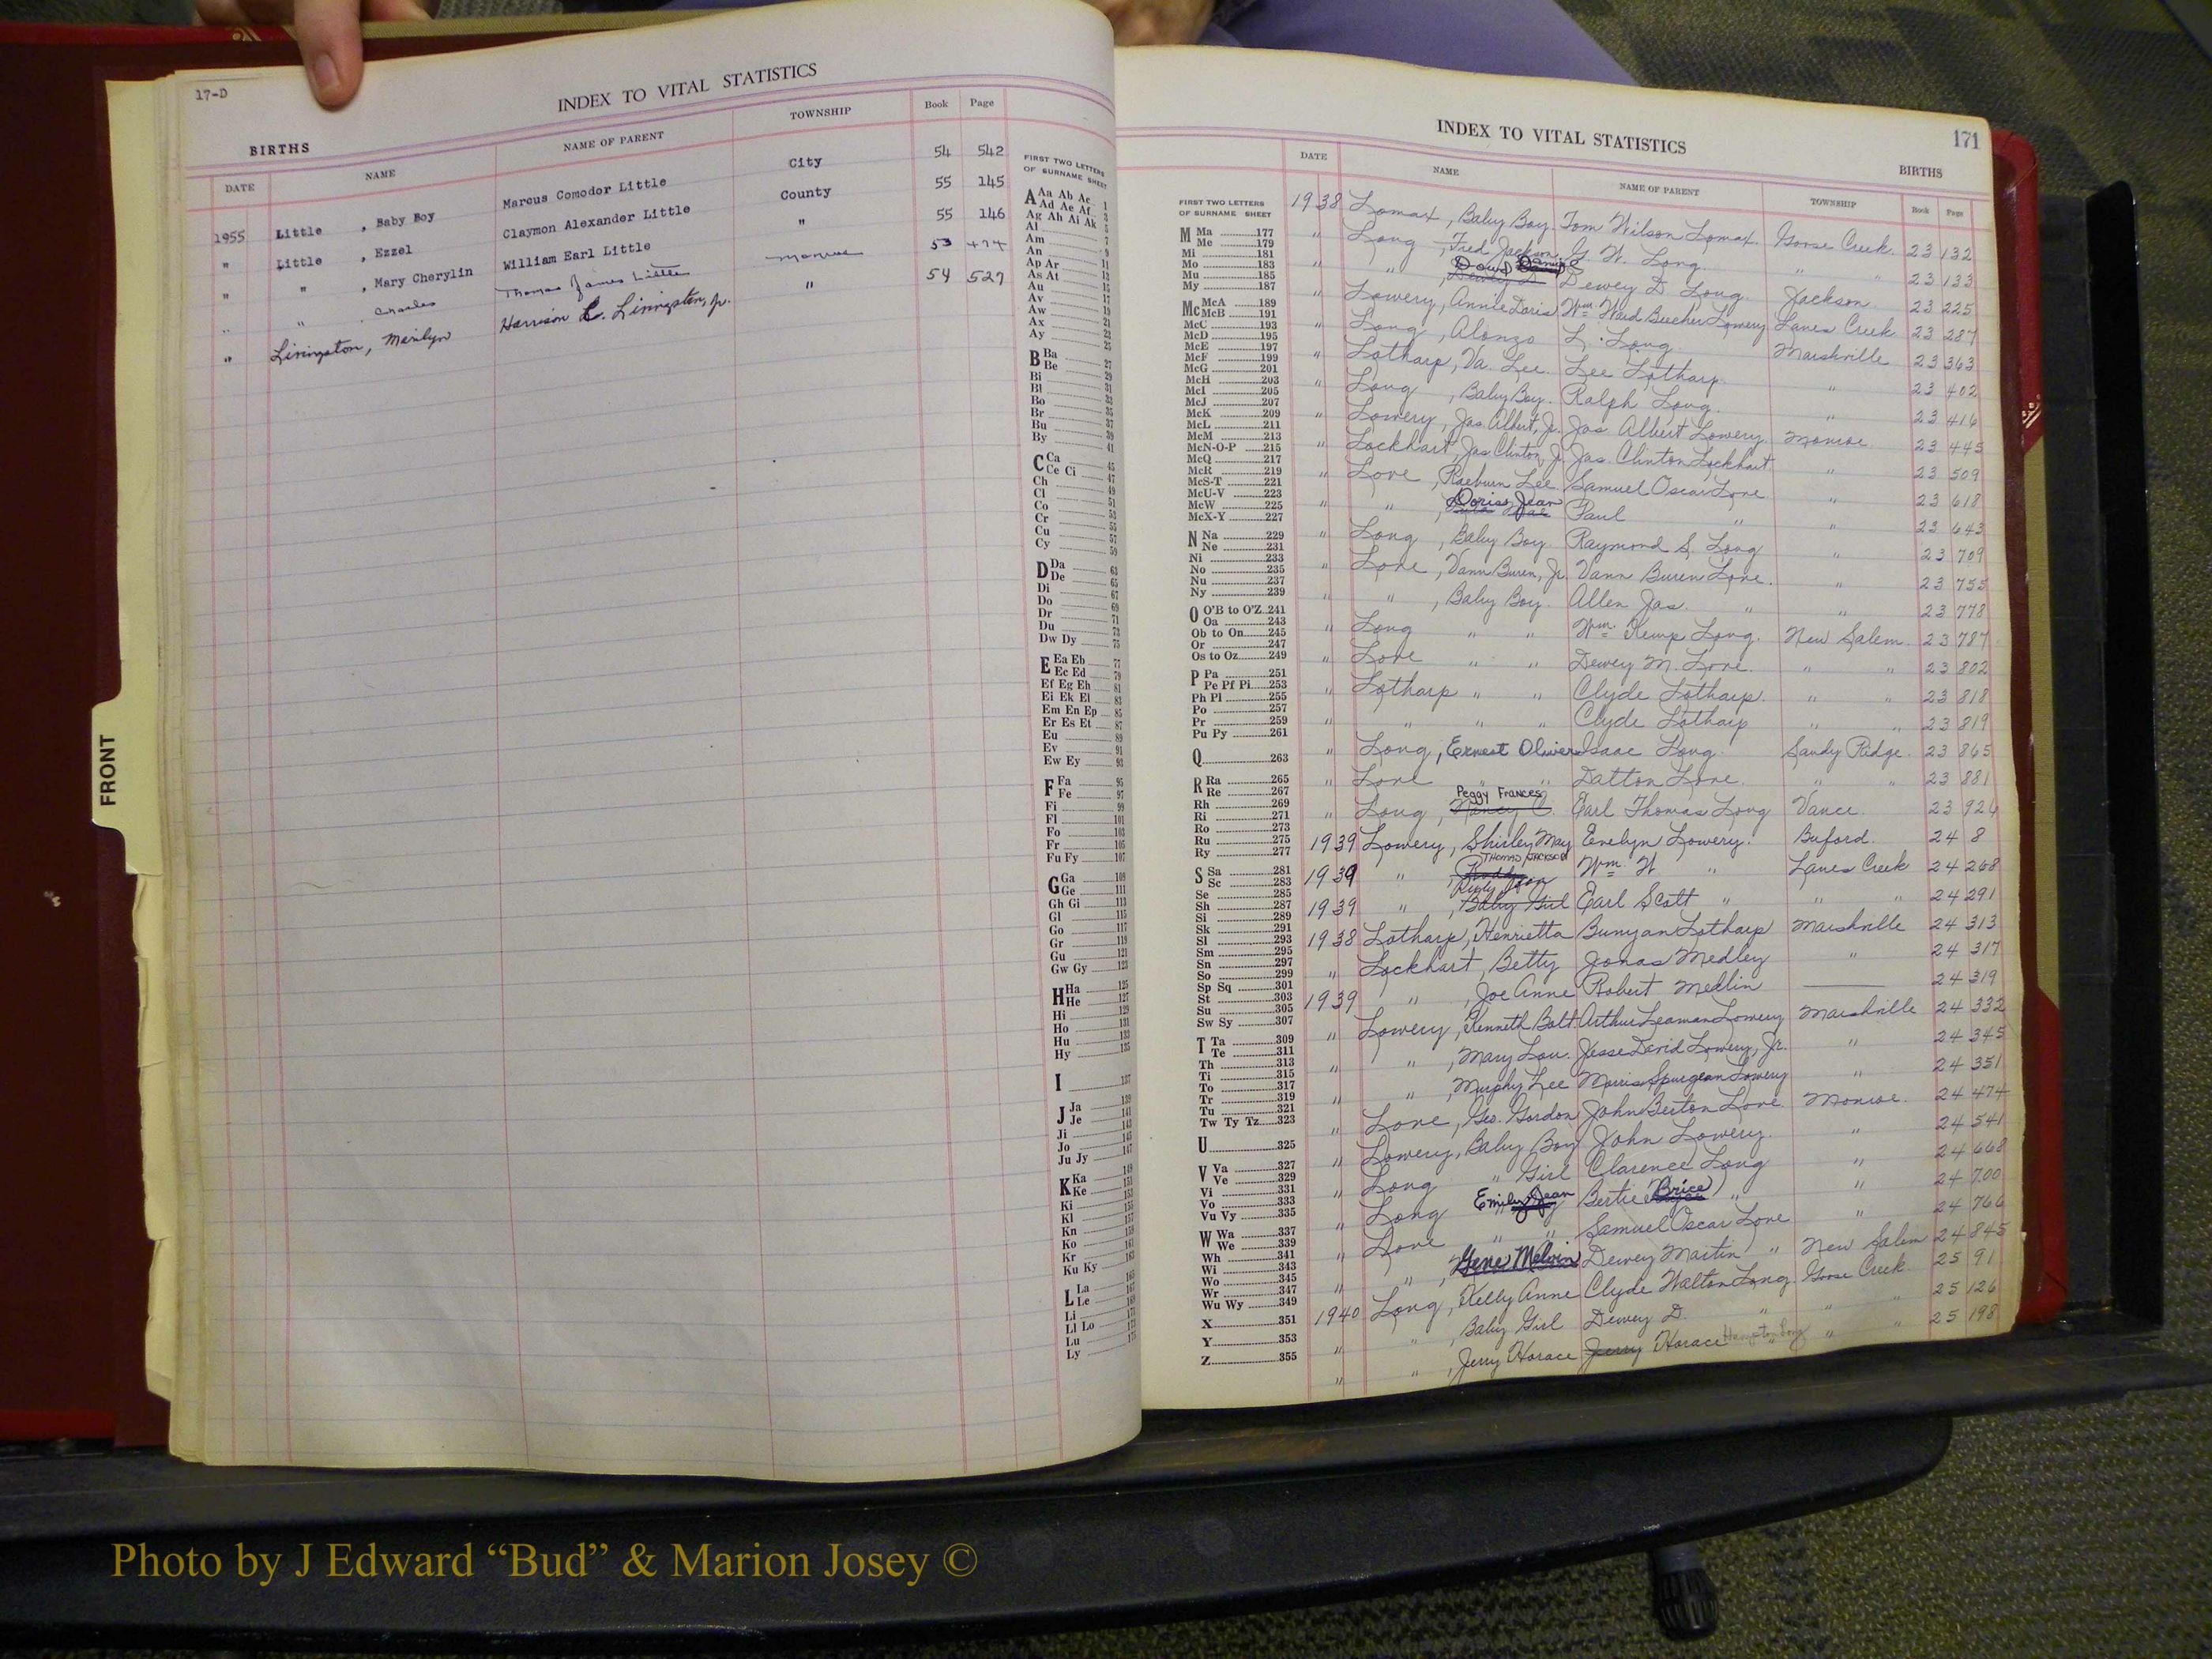 17-D
INDEX TO VITAL STATISTICS
BIRTHS
DATE NAME NAME OF PARENT TOWNSHIP Book Page
1955 Little , Baby Boy Marcus Comodor Little City 54 542
" Little , Ezzel Claymon Alexander Little County 55 145
" " , Mary Cherylin William Earl Little " 55 146
" " , Charles Thomas James Little Monroe 53 474
" Livingston, Marilyn Harrison L. Livingston, Jr. " 54 527
FRONT
FIRST TWO LETTERS
OF SURNAME SHEET
A Aa Ab Ac 1
Ad Ae Af 3
Ag Ah Ai Ak 5
Al 7
Am 9
An 11
Ap Ar 13
As At
Au
Av 17
Aw 19
Ax 21
Ay 23
B Ba
Be 27
Bi 29
Bl 31
Bo 33
Br 35
Bu 37
By 39
C Ca
Ce Ci 45
Ch 47
Cl 49
Co 51
Cr 53
Cu 55
Cy 57
D Da 63
De 65
Di 67
Do 69
Dr 71
Du 73
Dw Dy 75
E Ea Eb 77
Ec Ed 79
Ef Eg Eh 81
Ei Ek El 83
Em En Ep 85
Er Es Et 87
Eu 89
Ev 91
Ew Ey 93
F Fa 95
Fe 97
Fi 99
Fl 101
Fo 103
Fr 105
Fu Fy 107
G Ga 109
Ge 111
Gh Gi 113
Gl 115
Go 117
Gr 119
Gu 121
Gw Gy 123
H Ha 125
He 127
Hi 129
Ho 131
Hu 133
Hy 135
I 137
J Ja 139
Je 141
Ji 143
Jo 145
Ju Jy 147
K Ka 149
Ke 151
Ki 153
Kl 155
Kn 157
Ko 159
Kr 161
Ku Ky 163
L La 165
Le 167
Li 169
Ll Lo 171
Lu 173
Ly 175
INDEX TO VITAL STATISTICS 171
BIRTHS
DATE NAME NAME OF PARENT TOWNSHIP Book Page
FIRST TWO LETTERS
OF SURNAME SHEET
M Ma 177
Me 179
Mi 181
Mo 183
Mu 185
My 187
Mc McA 189
McB 191
McC 193
McD 195
McE 197
McF 199
McG 201
McH 203
McI 205
McJ 207
McK 209
McL 211
McM 213
McN-O-P 215
McQ 217
McR 219
McS-T 221
McU-V 223
McW 225
McX-Y 227
N Na 229
Ne 231
Ni 233
No 235
Nu 237
Ny 239
O O'B to O'Z 241
Oa 243
Ob to On 245
Or 247
Os to Oz 249
P Pa 251
Pe Pf Pi 253
Ph Pl 255
Po 257
Pr 259
Pu Py 261
Q 263
R Ra 265
Re 267
Rh 269
Ri 271
Ro 273
Ru 275
Ry 277
S Sa 281
Sc 283
Se 285
Sh 287
Si 289
Sk 291
Sl 293
Sm 295
Sn 297
So 299
Sp Sq 301
St 303
Su 305
Sw Sy 307
T Ta 309
Te 311
Th 313
Ti 315
To 317
Tr 319
Tu 321
Tw Ty Tz 323
U 325
V Va 327
Ve 329
Vi 331
Vo 333
Vu Vy 335
W Wa 337
We 339
Wh 341
Wi 343
Wo 345
Wr 347
Wu Wy 349
X 351
Y 353
Z 355
1938 Lomax, Baby Boy. Tom Wilson Lomax. Goose Creek. 23 132
" Long, Fred Jackson. G. W. Long. " " 23 133
" " , Dewey D. Long. Jackson. 23 225
" Lowery, Annie Doris Wm. Ward Beecher Lowery Lanes Creek 23 287
" Long, Alonzo L. Long. Marshville 23 363
" Lotharp, Va. Lee. Lee Lotharp. " 23 402
" Long, Baby Boy. Ralph Long. " 23 416
" Lowery, Jas. Albert, Jr. Jas. Albert Lowery. Monroe 23 445
" Lockhart, Jas. Clinton, Jr. Jas. Clinton Lockhart " 23 509
" Love, Raeburn Lee. Samuel Oscar Love " 23 618
" " , Doris Jean Paul " " 23 643
" Long, Baby Boy. Raymond S. Long " 23 709
" Love, Vann Buren, Jr. Vann Buren Love. " 23 755
" " , Baby Boy. Allen Jas. " " 23 778
" Long " " Wm. Kemp Long. New Salem. 23 787
" Love " " Dewey M. Love " " 23 802
" Lotharp " " Clyde Lotharp. " " 23 818
" " " " Clyde Lotharp " " 23 819
" Long, Ernest Oliver Isaac Long. Sandy Ridge. 23 865
" Love " " Datton Love. " " 23 881
" Long, Nancy C. Peggy Frances Earl Thomas Long Vance. 23 924
1939 Lowery, Shirley May Evelyn Lowery. Buford. 24 8
1939 " , THOMAS JACKSON Wm. W. " Lanes Creek 24 268
1939 " , Baby Girl Earl Scott " " " 24 291
1938 Lotharp, Henrietta Bunyan Lotharp Marshville 24 313
" Lockhart, Betty Jonas Medley " 24 317
1939 " , Joe Anne Robert Medlin 24 319
" Lowery, Kenneth Bolt Arthur Leaman Lowery Marshville 24 332
" " , Mary Lou. Jesse David Lowery, Jr. " 24 345
" " , Murphy Lee Morris Spurgeon Lowery " 24 351
" Love, Geo. Gordon John Benton Love. Monroe. 24 474
" Lowery, Baby Boy John Lowery. " 24 541
" Long " Girl Clarence Long " 24 668
" Long Emily Jean Bertie Brice " " 24 700
" Love " " Samuel Oscar Love " 24 766
" " , Gene Melvin Dewey Martin " New Salem 24 845
1940 Long, Kelly Anne Clyde Walton Long Goose Creek. 25 91
" " , Baby Girl Dewey D. " " " 25 126
" " , Jerry Horace Jerry Horace " " " 25 198
Photo by J Edward “Bud” & Marion Josey ©